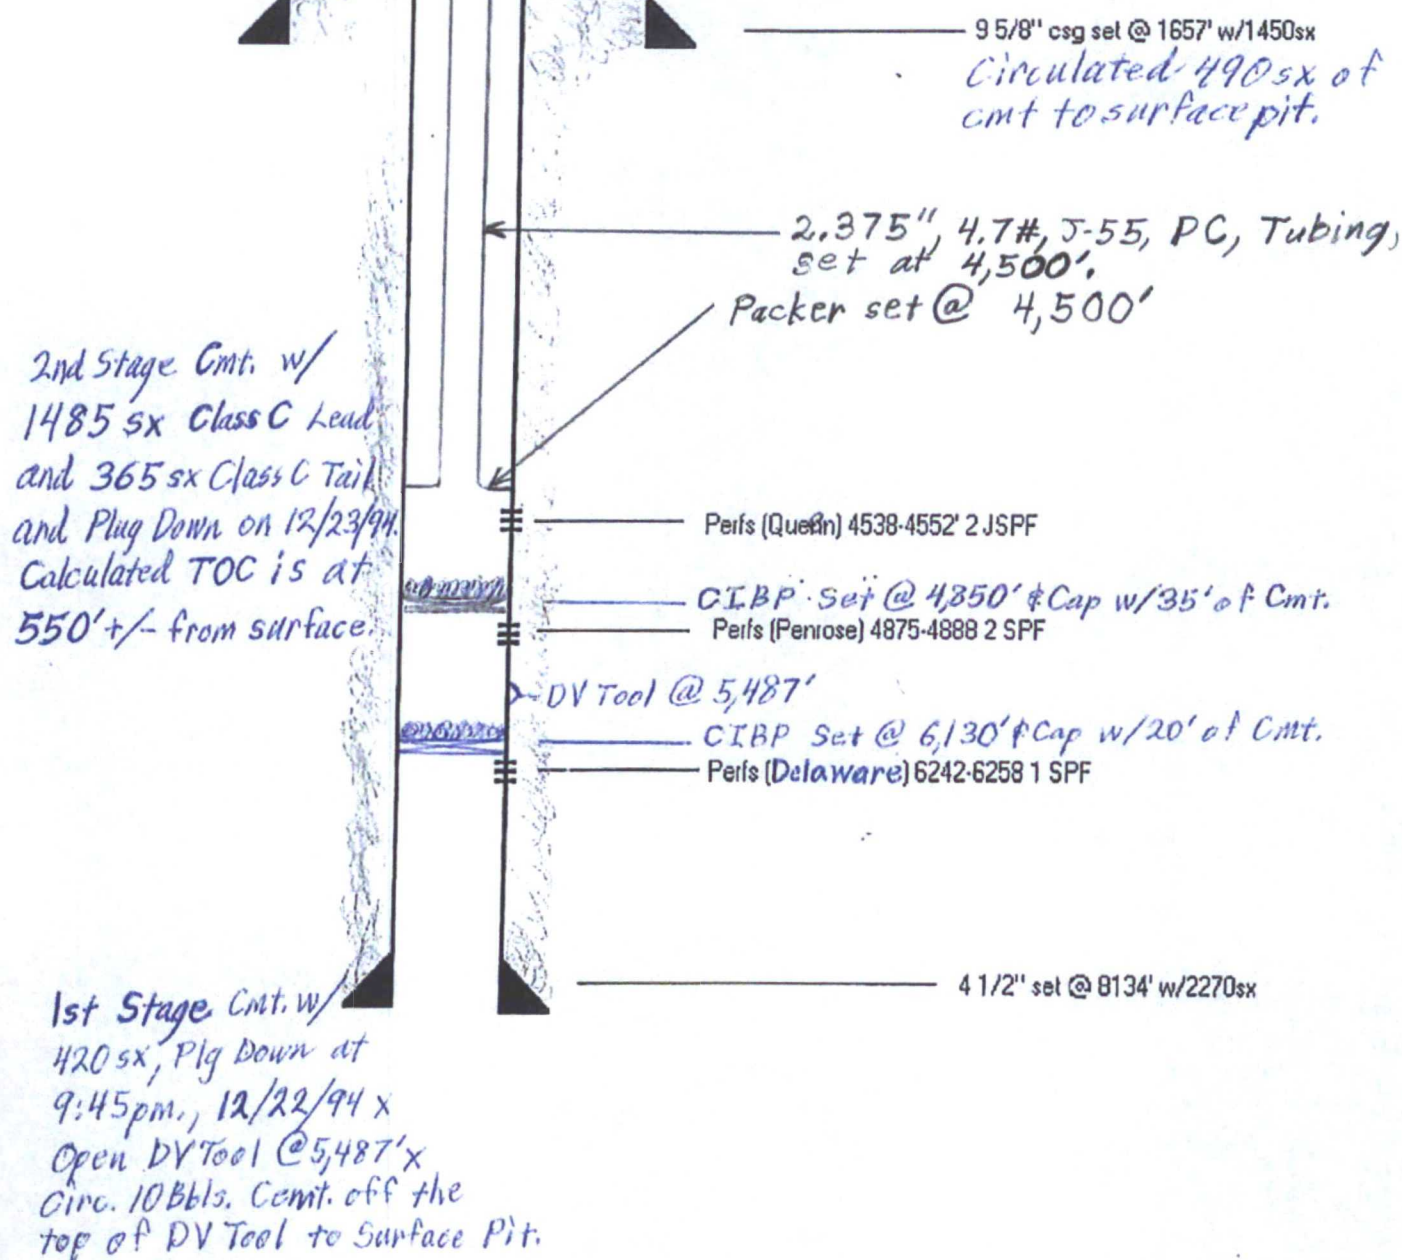 9 5/8" csg set @ 1657' w/1450sx
Circulated 490 sx of
cmt to surface pit.
2.375", 4.7#, J-55, PC, Tubing,
set at 4,500'.
Packer set @ 4,500'
2nd Stage Cmt. w/
1485 sx Class C Lead
and 365 sx Class C Tail
and Plug Down on 12/23/94.
Calculated TOC is at
550' +/- from surface.
Perfs (Queen) 4538-4552' 2 JSPF
CIBP Set @ 4,850' & Cap w/35' of Cmt.
Perfs (Penrose) 4875-4888 2 SPF
DV Tool @ 5,487'
CIBP Set @ 6,130' & Cap w/20' of Cmt.
Perfs (Delaware) 6242-6258 1 SPF
4 1/2" set @ 8134' w/2270sx
1st Stage Cmt. w/
420 sx, Plg Down at
9:45pm., 12/22/94 x
Open DV Tool @5,487' x
Circ. 10 Bbls. Cemt. off the
top of DV Tool to Surface Pit.